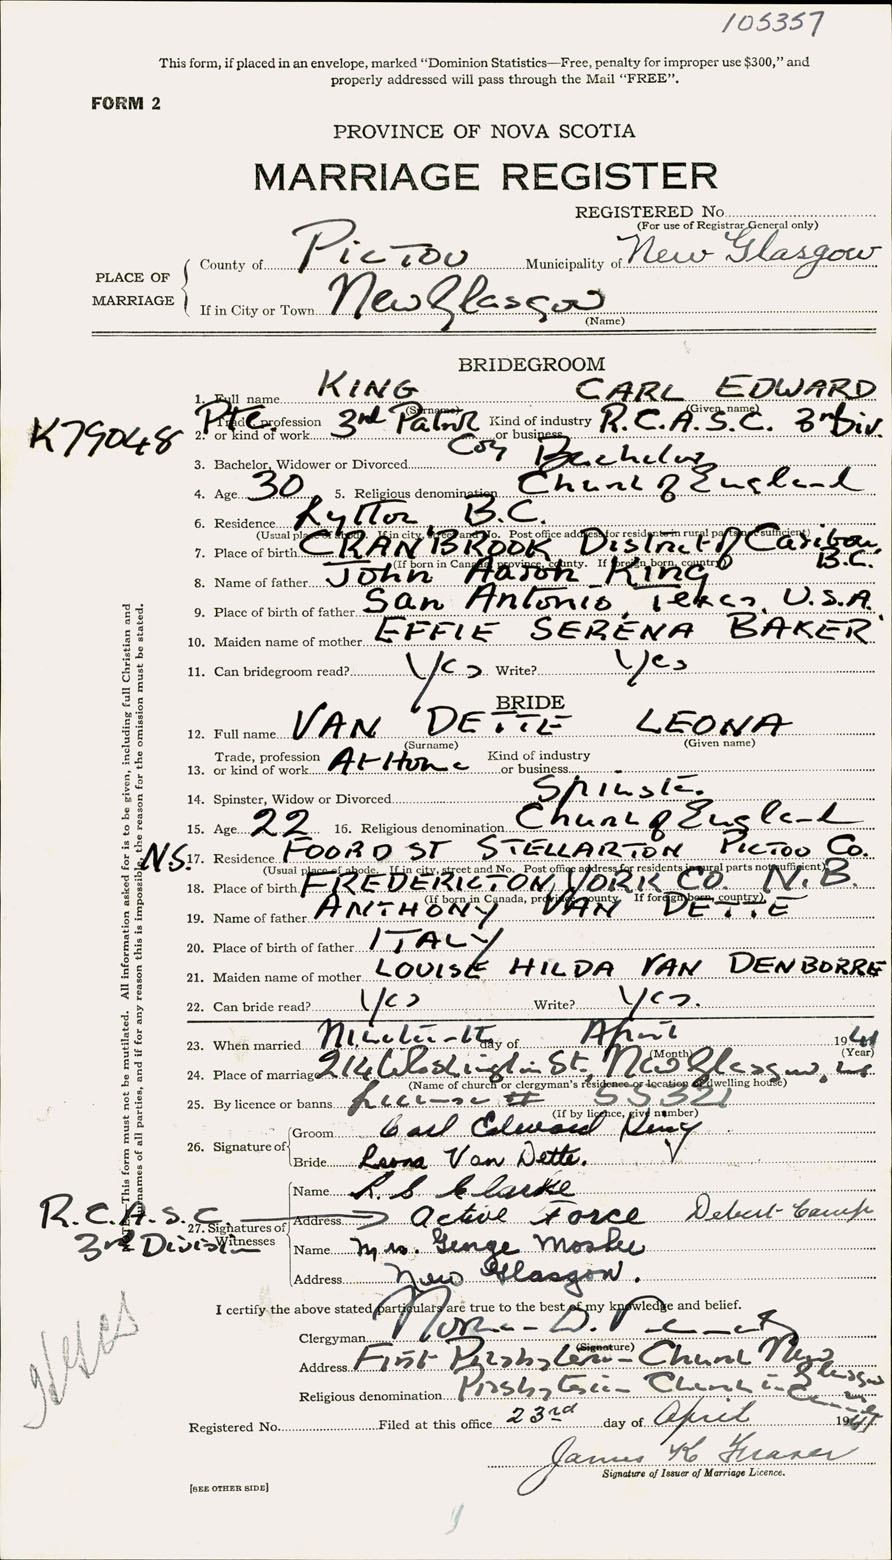 105357
This form, if placed in an envelope, marked "Dominion Statistics—Free, penalty for improper use $300," and
properly addressed will pass through the Mail "FREE".
FORM 2
PROVINCE OF NOVA SCOTIA
MARRIAGE REGISTER
REGISTERED No.
(For use of Registrar General only)
PLACE OF MARRIAGE
County of Pictou Municipality of New Glasgow
If in City or Town New Glasgow
(Name)
BRIDEGROOM
1. Full name KING CARL EDWARD
(Surname) (Given name)
K79048
2. Trade, profession or kind of work Pte. 3rd Patrol Coy Kind of industry or business R.C.A.S.C. 3rd Div.
3. Bachelor, Widower or Divorced Bachelor
4. Age 30 5. Religious denomination Church of England
6. Residence Lytton, B.C.
(Usual place of abode. If in city, street and No. Post office address for residents in rural parts not sufficient)
7. Place of birth CRANBROOK District of Cariboo, B.C.
(If born in Canada, province, county. If foreign born, country)
8. Name of father John Aaron King
9. Place of birth of father San Antonio, Texas, U.S.A.
10. Maiden name of mother EFFIE SERENA BAKER
11. Can bridegroom read? Yes Write? Yes
BRIDE
12. Full name VAN DETTE LEONA
(Surname) (Given name)
13. Trade, profession or kind of work At Home Kind of industry or business
14. Spinster, Widow or Divorced Spinster
15. Age 22 16. Religious denomination Church of England
17. Residence FOORD ST STELLARTON PICTOU Co. N.S.
(Usual place of abode. If in city, street and No. Post office address for residents in rural parts not sufficient)
18. Place of birth FREDERICTON, YORK CO. N.B.
(If born in Canada, province, county. If foreign born, country)
19. Name of father ANTHONY VAN DETTE
20. Place of birth of father ITALY
21. Maiden name of mother LOUISE HILDA VAN DENBORRE
22. Can bride read? Yes Write? Yes.
23. When married Nineteenth day of April 1941
(Month) (Year)
24. Place of marriage 214 Washington St., New Glasgow, N.S.
(Name of church or clergyman's residence or location of dwelling house)
25. By licence or banns License # 55321
(If by licence, give number)
26. Signature of
Groom Carl Edward King
Bride Leona Van Dette.
27. Signatures of Witnesses
Name R. S. Clarke
R.C.A.S.C. 3rd Division
Address Active Force Debert Camp
Name Mrs. George
Address New Glasgow.
I certify the above stated particulars are true to the best of my knowledge and belief.
Clergyman Norman D.
(Signature)
Address First Presbyterian Church New Glasgow
Religious denomination Presbyterian Church in Canada
Registered No. Filed at this office 23rd day of April 1941
James K Fraser
Signature of Issuer of Marriage Licence.
[SEE OTHER SIDE]
N.B.—This form must not be mutilated. All information asked for is to be given, including full Christian and
Surnames of all parties, and if for any reason this is impossible, the reason for the omission must be stated.